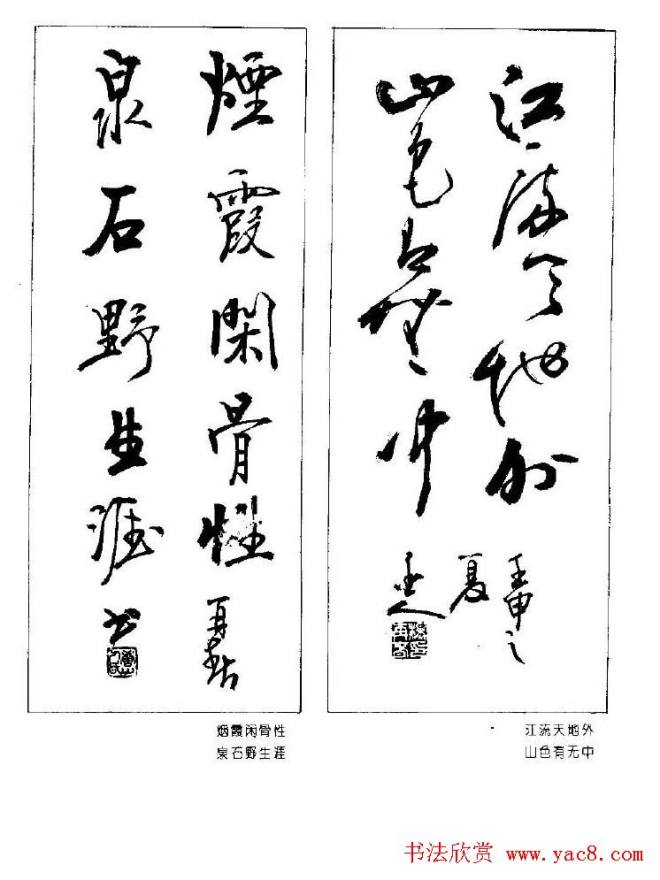 江流天地外
山色有无中
壬申之
夏
煙霞閑骨性
泉石野生涯
书
烟霞闲骨性
泉石野生涯
江流天地外
山色有无中
书法欣赏 www.yac8.com